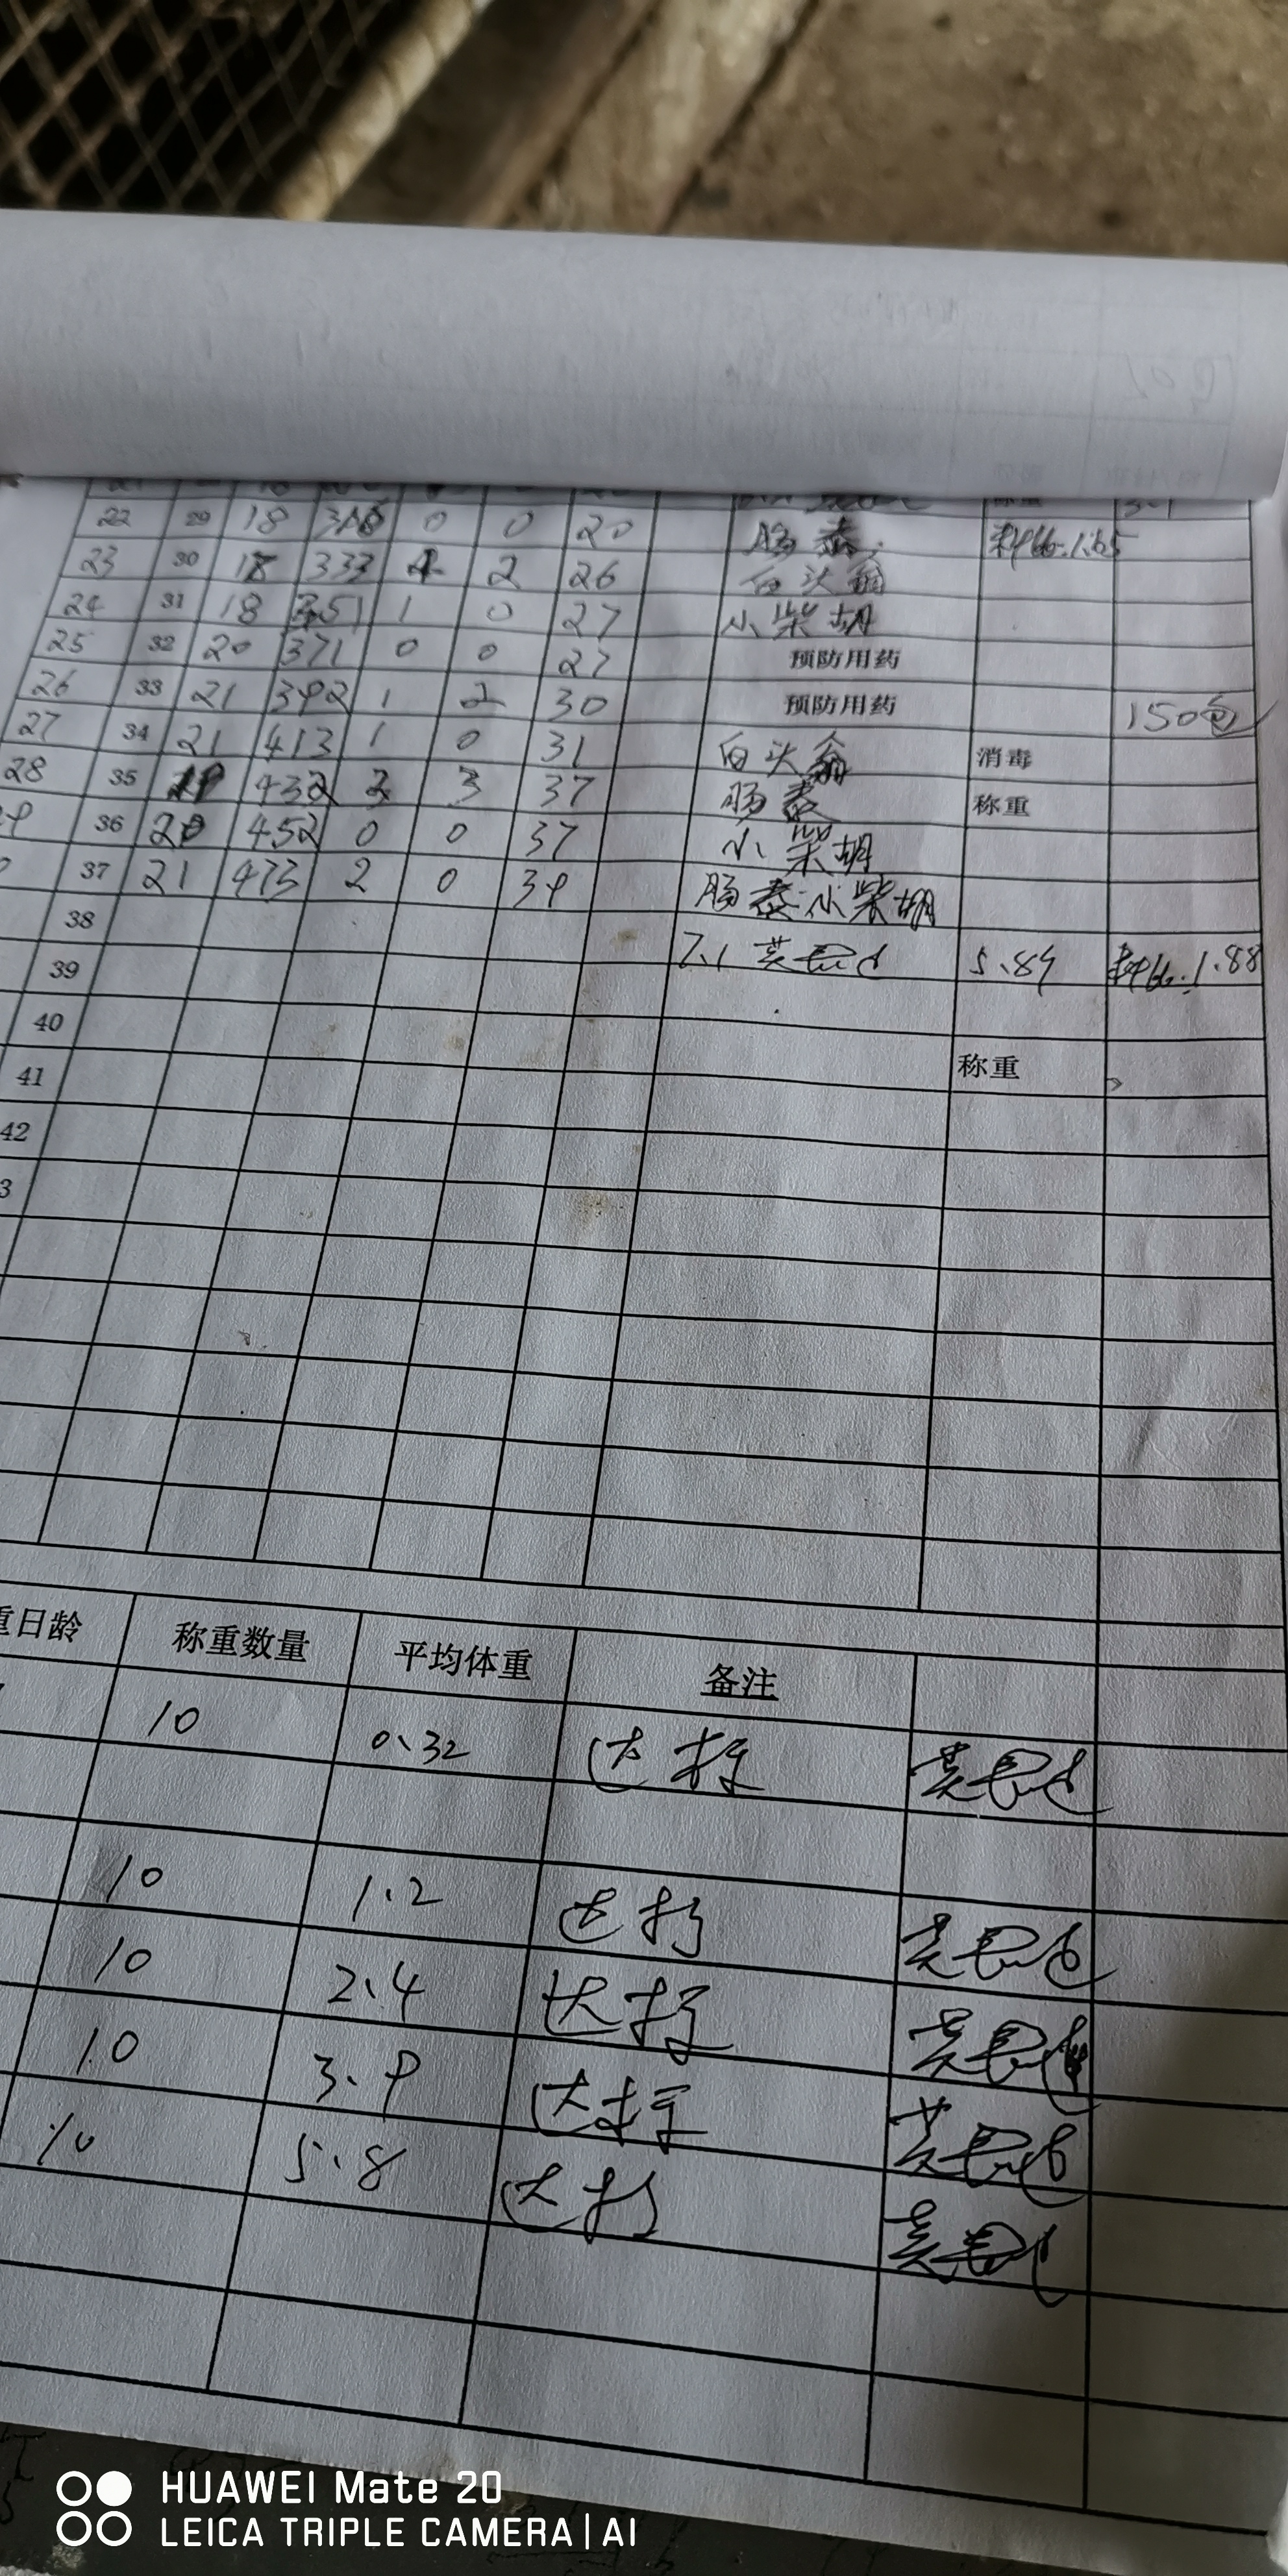 22 29 18 0 0 20 肠泰 料比:1.65
23 30 18 333 2 26 白头翁
24 31 18 351 1 0 27 小柴胡
25 32 20 371 0 0 27 预防用药
26 33 21 392 1 2 30 预防用药 150包
27 34 21 413 1 0 31 白头翁 消毒
28 35 19 432 3 3 37 肠泰 称重
36 20 452 0 0 37 小柴胡
37 21 473 2 0 39 肠泰小柴胡
38
39 7.1 5.89 料比:1.88
40
41 称重
42
3
重日龄 称重数量 平均体重 备注
10 0.32 达标
10 1.2 达标
10 2.4 达标
10 3.9 达标
10 5.8 达标
HUAWEI Mate 20
LEICA TRIPLE CAMERA | AI